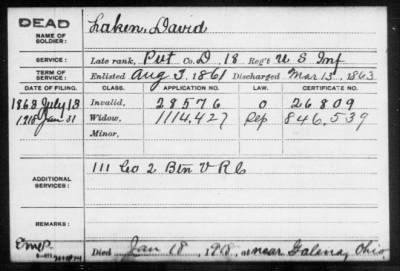 DEAD
NAME OF SOLDIER:
Laken, David
SERVICE:
Late rank, Pvt Co. D, 18 Reg't U S Inf
TERM OF SERVICE:
Enlisted Aug 3, 1861 Discharged Mar 13, 1863
DATE OF FILING. CLASS. APPLICATION NO. LAW. CERTIFICATE NO.
1863 July 13 Invalid, 28576 O 26809
1918 Jan 31 Widow, 1114,427 Rep 846,539
Minor,
ADDITIONAL SERVICES:
111 Co 2 Btn V R C
REMARKS:
Died Jan 18, 1918, at near Galena, Ohio